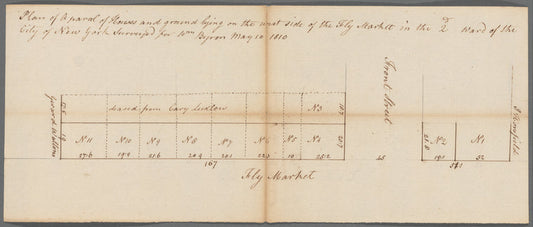 Plan of a parcel of Houses and ground lying on the west side of the Fly Market in the 2d Ward of the
City of New York Surveyed for Wm Byron May 10 1810
Front Street
Gerard Walton
leased from Cary Ludlow
No 3
No 11
No 10
No 9
No 8
No 7
No 6
No 5
No 4
No 2
No 1
27.6
19.2
21.6
20.9
20.1
22.3
10
25.2
167
25
19.1
32
51.1
Fly Market